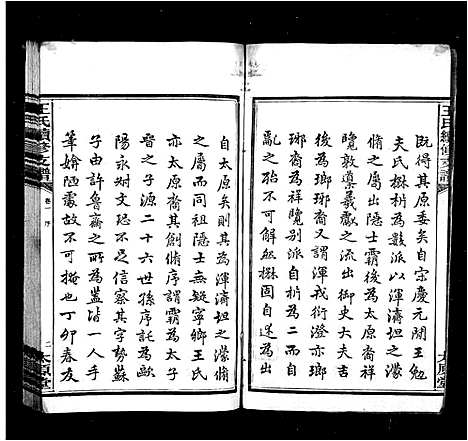 王氏續修支譜
太原堂
既得其原委矣自宗慶元間王勉
夫氏楙析為數派以渾濤坦之
脩之屬出隱士霸後為太原裔
覽敦導羲獻之流出御史大夫吉
後為瑯琊裔又謂渾戎衍澄亦瑯
琊裔為祥覽別派自析為二而自
亂之殆不可解然楙固自述為出
自太原矣則其為渾濤坦之濛脩
之屬而同祖隱士無疑寧鄉王氏
亦太原裔其創脩序謂霸為太子
晉之子源二十六世孫序託為歐
陽永叔文恐不足信察其字勢蘇
子由許魯齋之所為蓋沽一人之
筆媸陋處故不可掩也丁卯春友
王氏續修支譜
卷一
序
二
太原堂